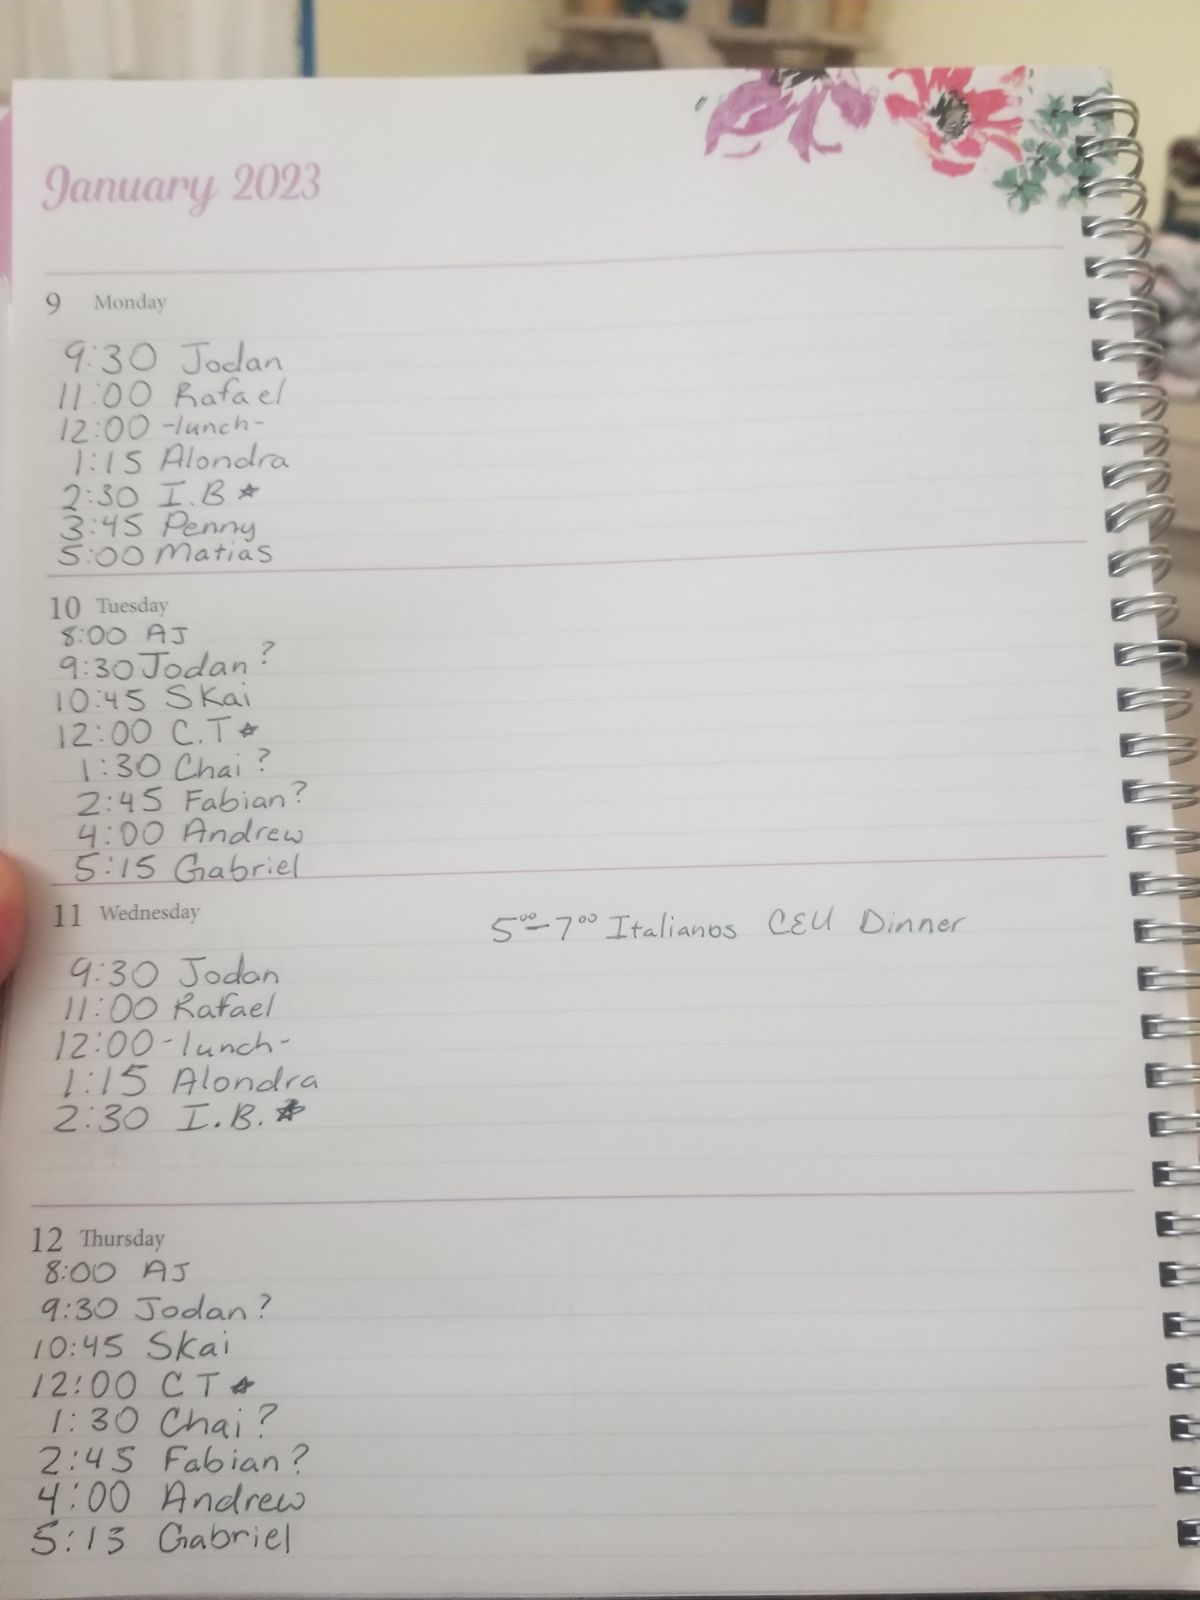 January 2023
9 Monday
9:30 Jodan
11:00 Rafael
12:00 -lunch-
1:15 Alondra
2:30 I.B ☆
3:45 Penny
5:00 Matias
10 Tuesday
8:00 AJ
9:30 Jodan?
10:45 Skai
12:00 C.T ☆
1:30 Chai?
2:45 Fabian?
4:00 Andrew
5:15 Gabriel
11 Wednesday
5⁰⁰-7⁰⁰ Italianos CEU Dinner
9:30 Jodan
11:00 Rafael
12:00 -lunch-
1:15 Alondra
2:30 I.B. ☆
12 Thursday
8:00 AJ
9:30 Jodan?
10:45 Skai
12:00 CT ☆
1:30 Chai?
2:45 Fabian?
4:00 Andrew
5:13 Gabriel